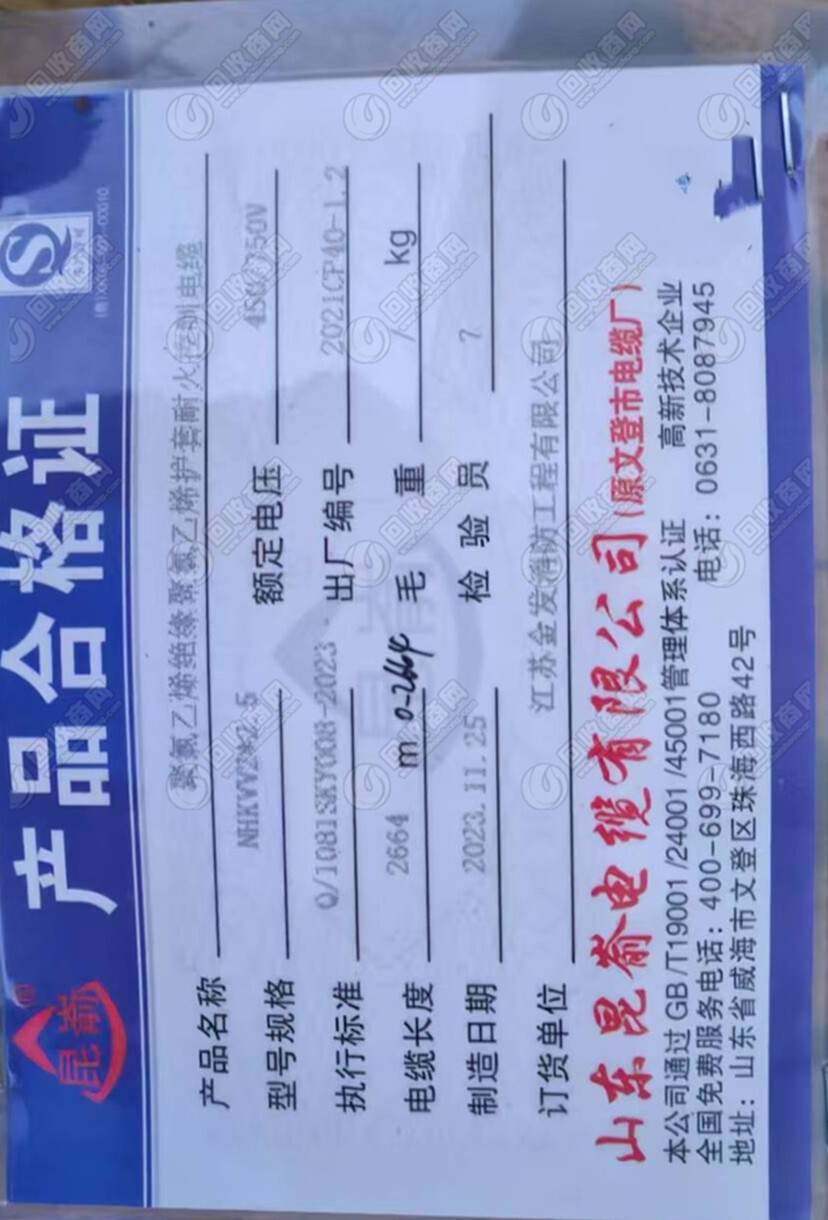 昆嵛®
产品合格证
产品名称 聚氯乙烯绝缘聚氯乙烯护套耐火控制电缆
型号规格 NHKVV2*2.5 额定电压 450/750V
执行标准 Q/1081SKY008-2023 出厂编号 2021CP40-1.2
电缆长度 2664 m 0-2664 毛重 / kg
制造日期 2023.11.25 检验员 7
订货单位 江苏金发消防工程有限公司
山东昆嵛电缆有限公司(原文登市电缆厂)
本公司通过GB/T19001/24001/45001管理体系认证 高新技术企业
全国免费服务电话:400-699-7180 电话:0631-8087945
地址:山东省威海市文登区珠海西路42号
回收商网